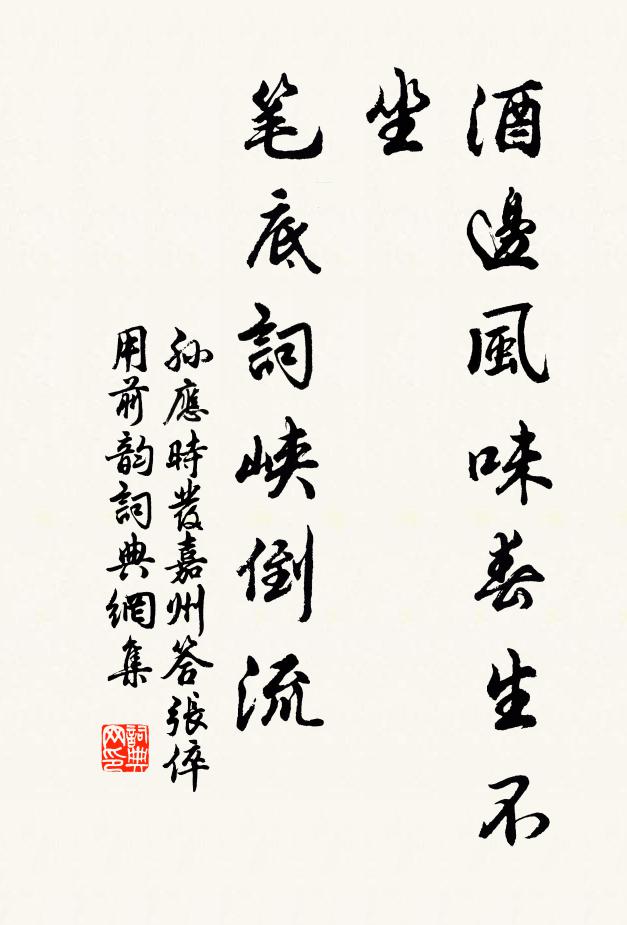 酒邊風味春生不
坐
笔底詞峽倒流
孫應時發嘉州答張倅
用前韵詞典網集
詞典
网印